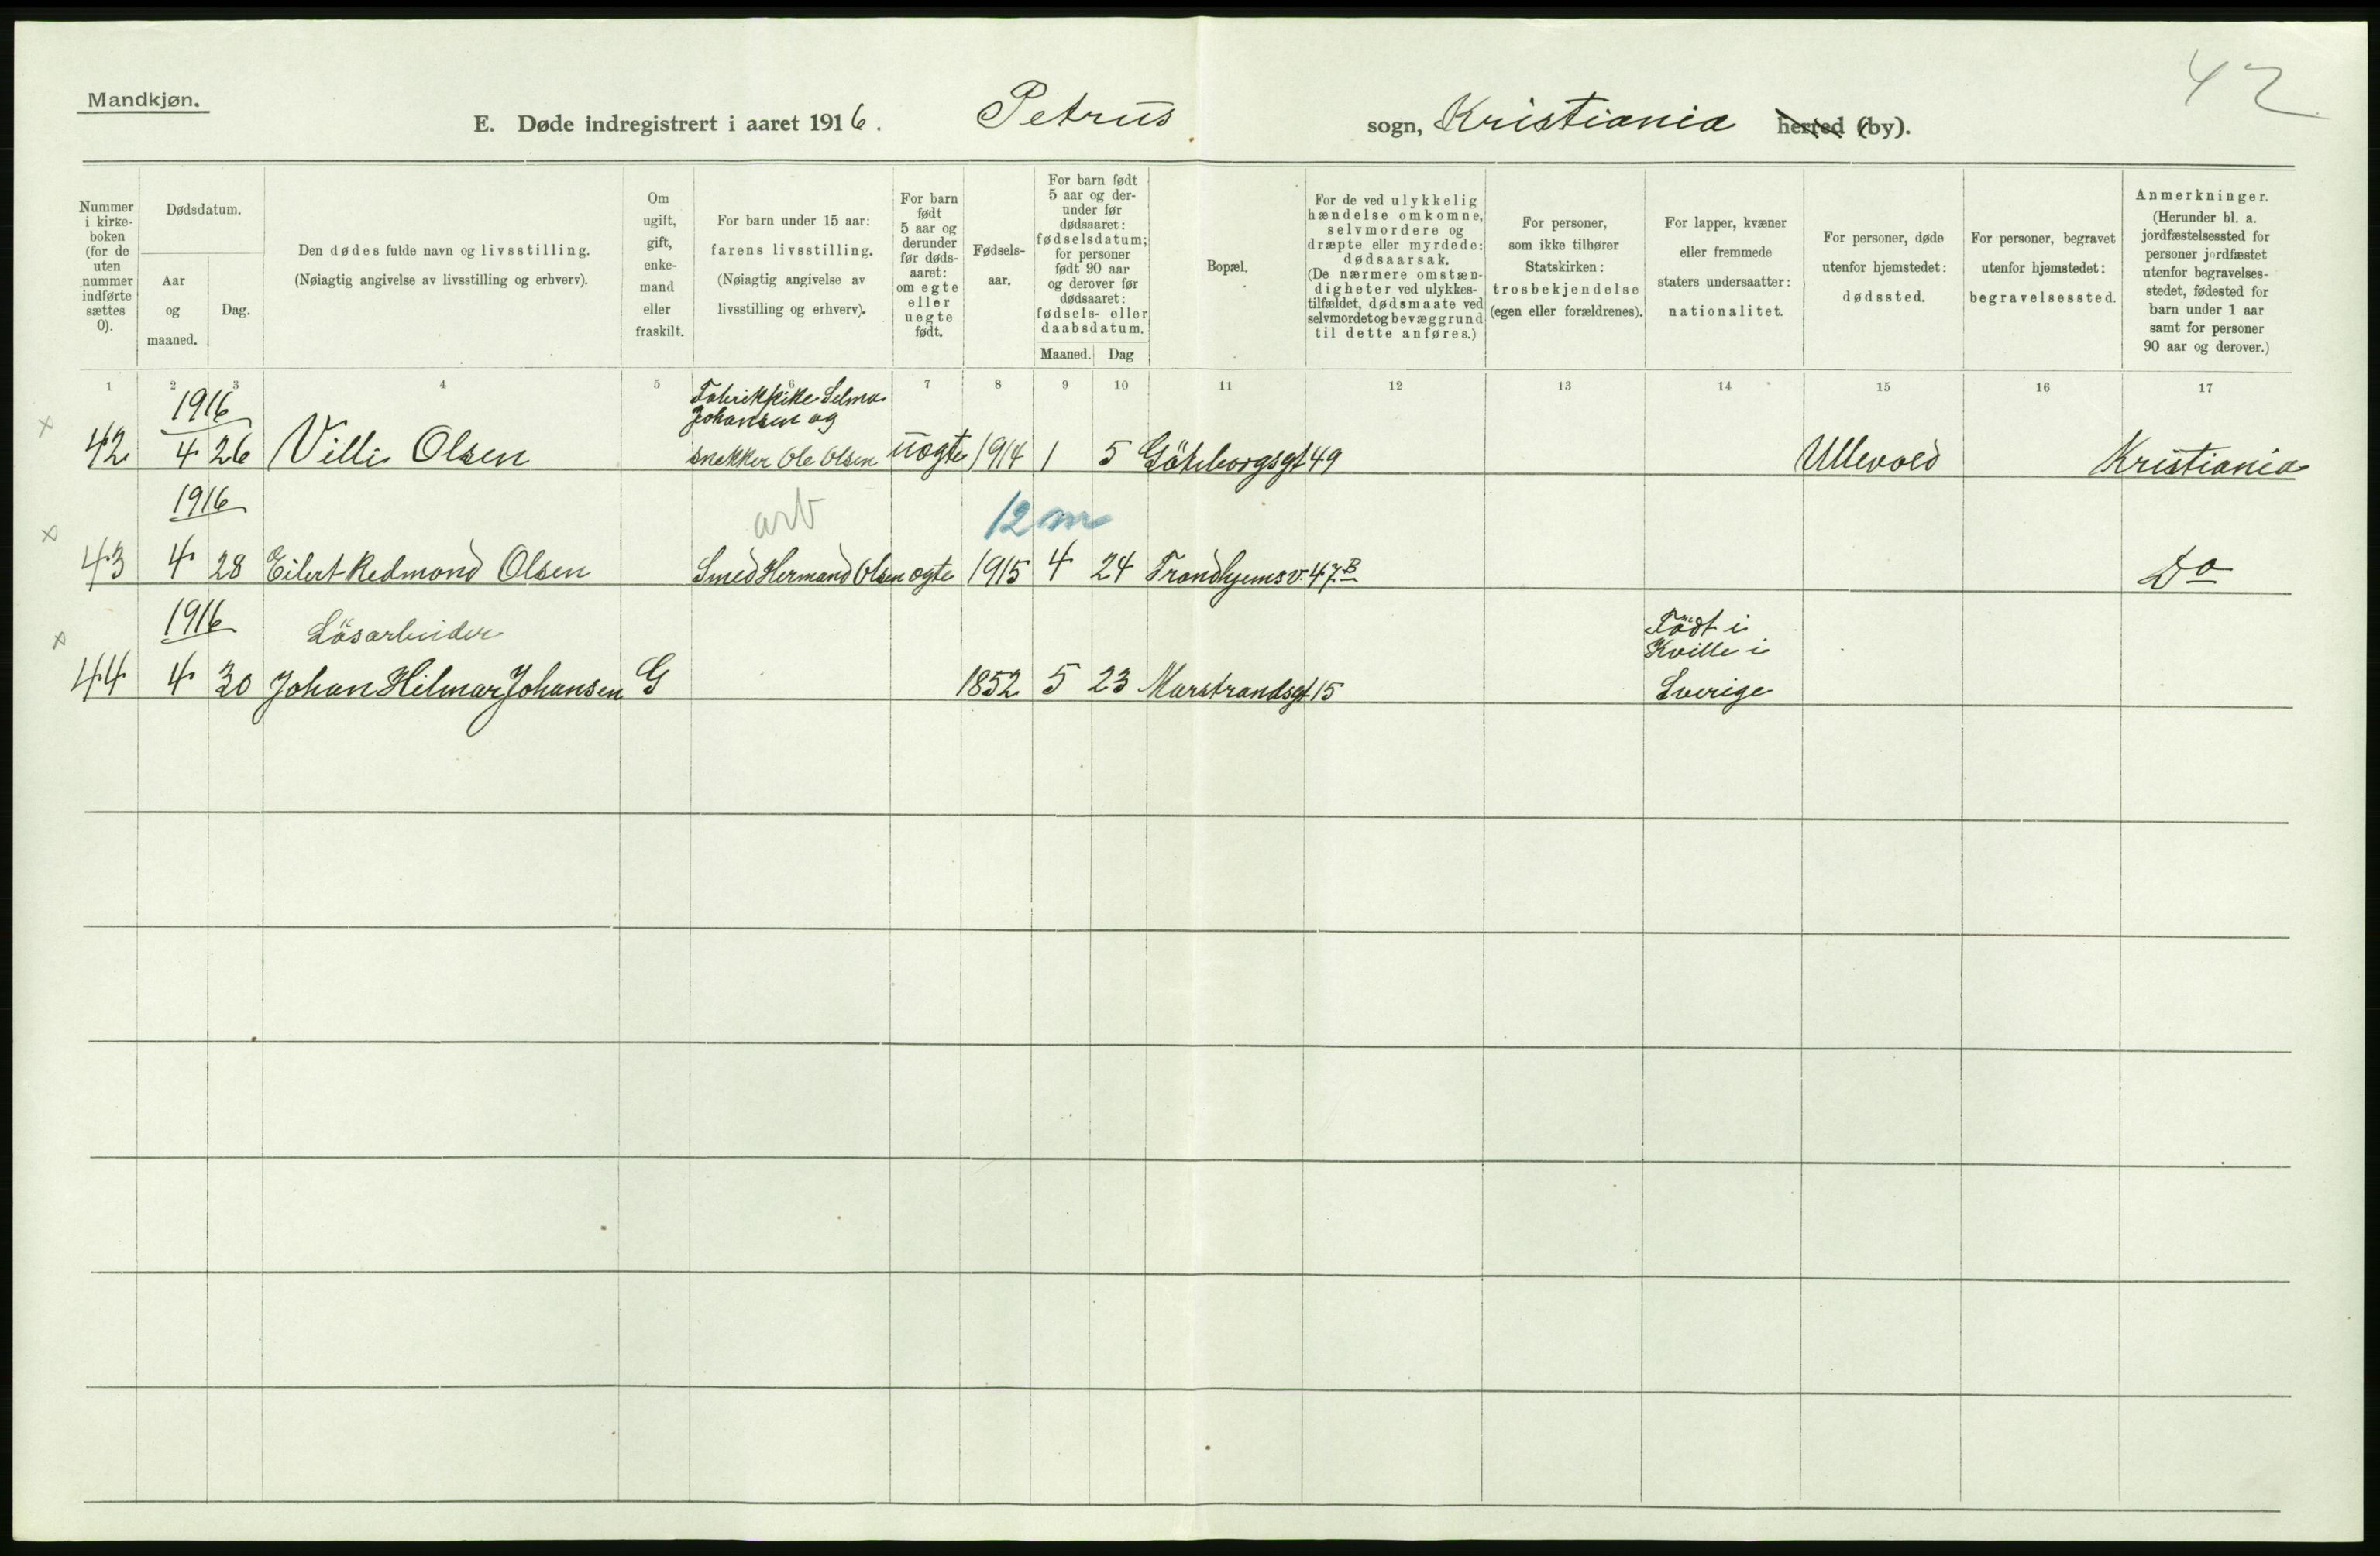 42
Mandkjøn.
E. Døde indregistrert i aaret 1916. Petrus sogn, Kristiania herred (by).
Nummer i kirkeboken (for de uten nummer indførte sættes 0).
Dødsdatum.
Aar og maaned.
Dag.
Den dødes fulde navn og livsstilling.
(Nøiagtig angivelse av livsstilling og erhverv).
Om ugift, gift, enkemand eller fraskilt.
For barn under 15 aar:
farens livsstilling.
(Nøiagtig angivelse av livsstilling og erhverv).
For barn født 5 aar og derunder før dødsaaret: om egte eller uegte født.
Fødselsaar.
For barn født 5 aar og derunder før dødsaaret: fødselsdatum; for personer født 90 aar og derover før dødsaaret: fødsels- eller daabsdatum.
Maaned. Dag
Bopæl.
For de ved ulykkelig hændelse omkomne, selvmordere og dræpte eller myrdede: dødsaarsak. (De nærmere omstændigheter ved ulykkestilfældet, dødsmaate ved selvmordet og bevæggrund til dette anføres.)
For personer, som ikke tilhører Statskirken: trosbekjendelse (egen eller forældrenes).
For lapper, kvæner eller fremmede staters undersaatter: nationalitet.
For personer, døde utenfor hjemstedet: dødssted.
For personer, begravet utenfor hjemstedet: begravelsessted.
Anmerkninger.
(Herunder bl. a. jordfæstelsessted for personer jordfæstet utenfor begravelsesstedet, fødested for barn under 1 aar samt for personer 90 aar og derover.)
1 2 3 4 5 6 7 8 9 10 11 12 13 14 15 16 17
1916 Fabrikkpike Selma
Johansen og
x 42 4 26 Villi Olsen snekker Ole Olsen uægte 1914 1 5 Göteborgsgt 49 Ullevold Kristiania
1916 arb 12 m
x 43 4 28 Eilert Redmond Olsen Smed Hermand Olsen ægte 1915 4 24 Trondhjemsv. 47 B Do
1916 Lösarbeider Födt i
Kville i
x 44 4 30 Johan Hilmar Johansen G 1852 5 23 Marstrandsgt 15 Sverige